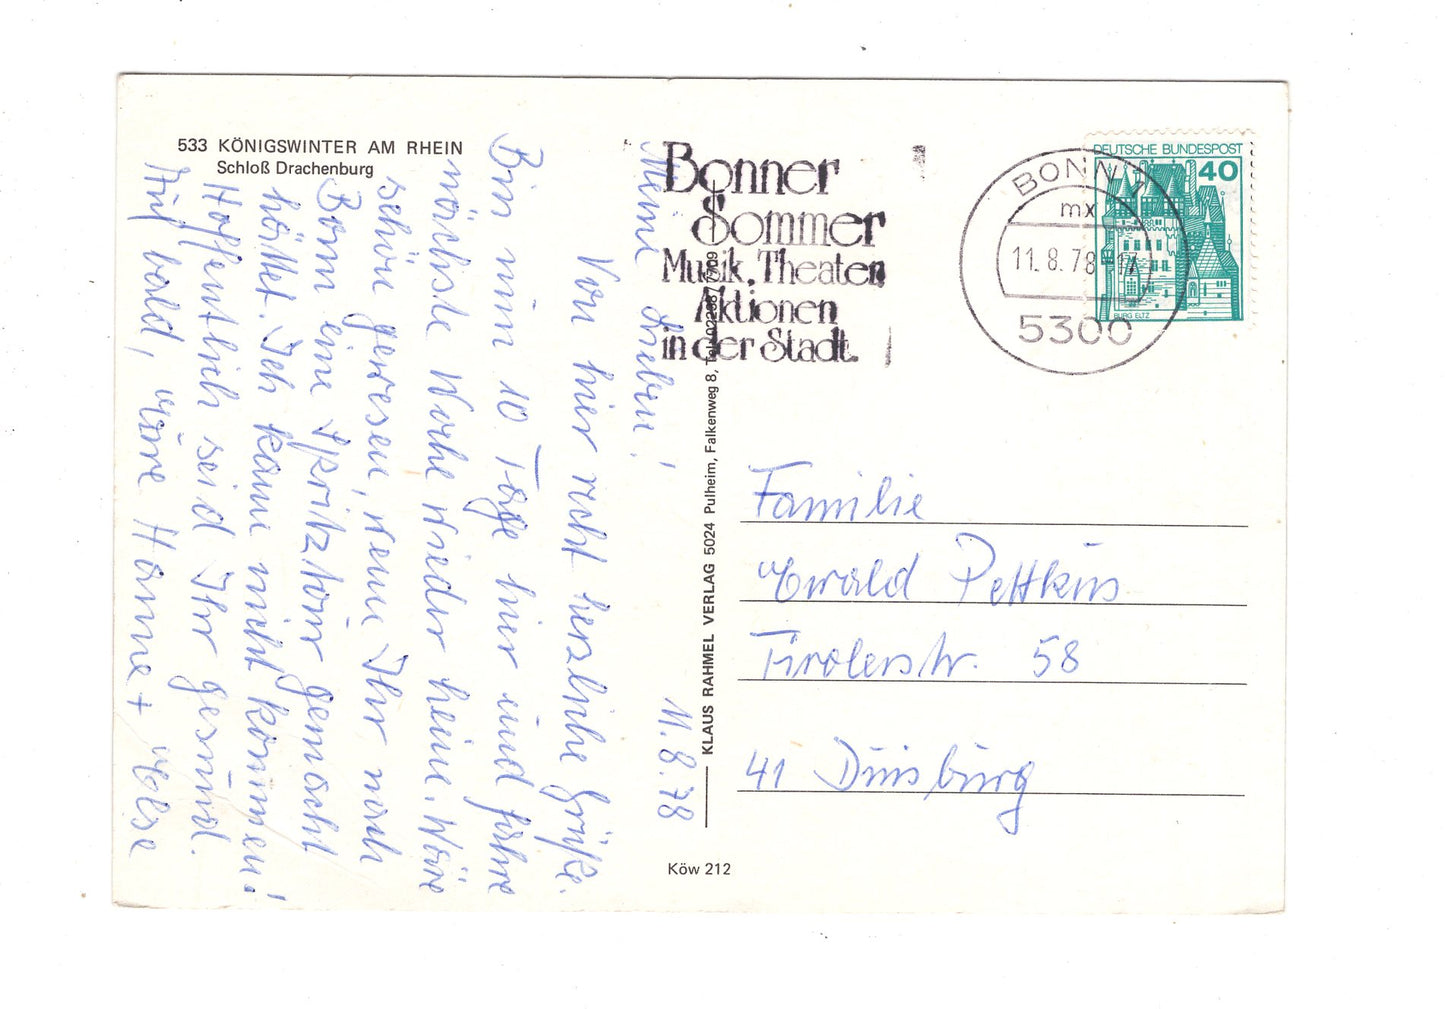 533 KÖNIGSWINTER AM RHEIN
Schloß Drachenburg
11.8.78
Meine Lieben!
Von hier recht herzliche Grüße.
Bin nun 10 Tage hier und fahre
nächste Woche wieder heim. Wäre
schön gewesen, wenn Ihr nach
Bonn eine Spritztour gemacht
hättet. Ich kann nicht kommen!
Hoffentlich seid Ihr gesund.
Auf bald, eure Hanne + Else
KLAUS RAHMEL VERLAG 5024 Pulheim, Falkenweg 8, Tel.
Köw 212
Bonner
Sommer
Musik, Theater,
Aktionen
in der Stadt.
BONN 1
mx
11.8.78-17
5300
DEUTSCHE BUNDESPOST
40
BURG ELTZ
Familie
Ewald Pettkus
Tirolerstr. 58
41 Duisburg